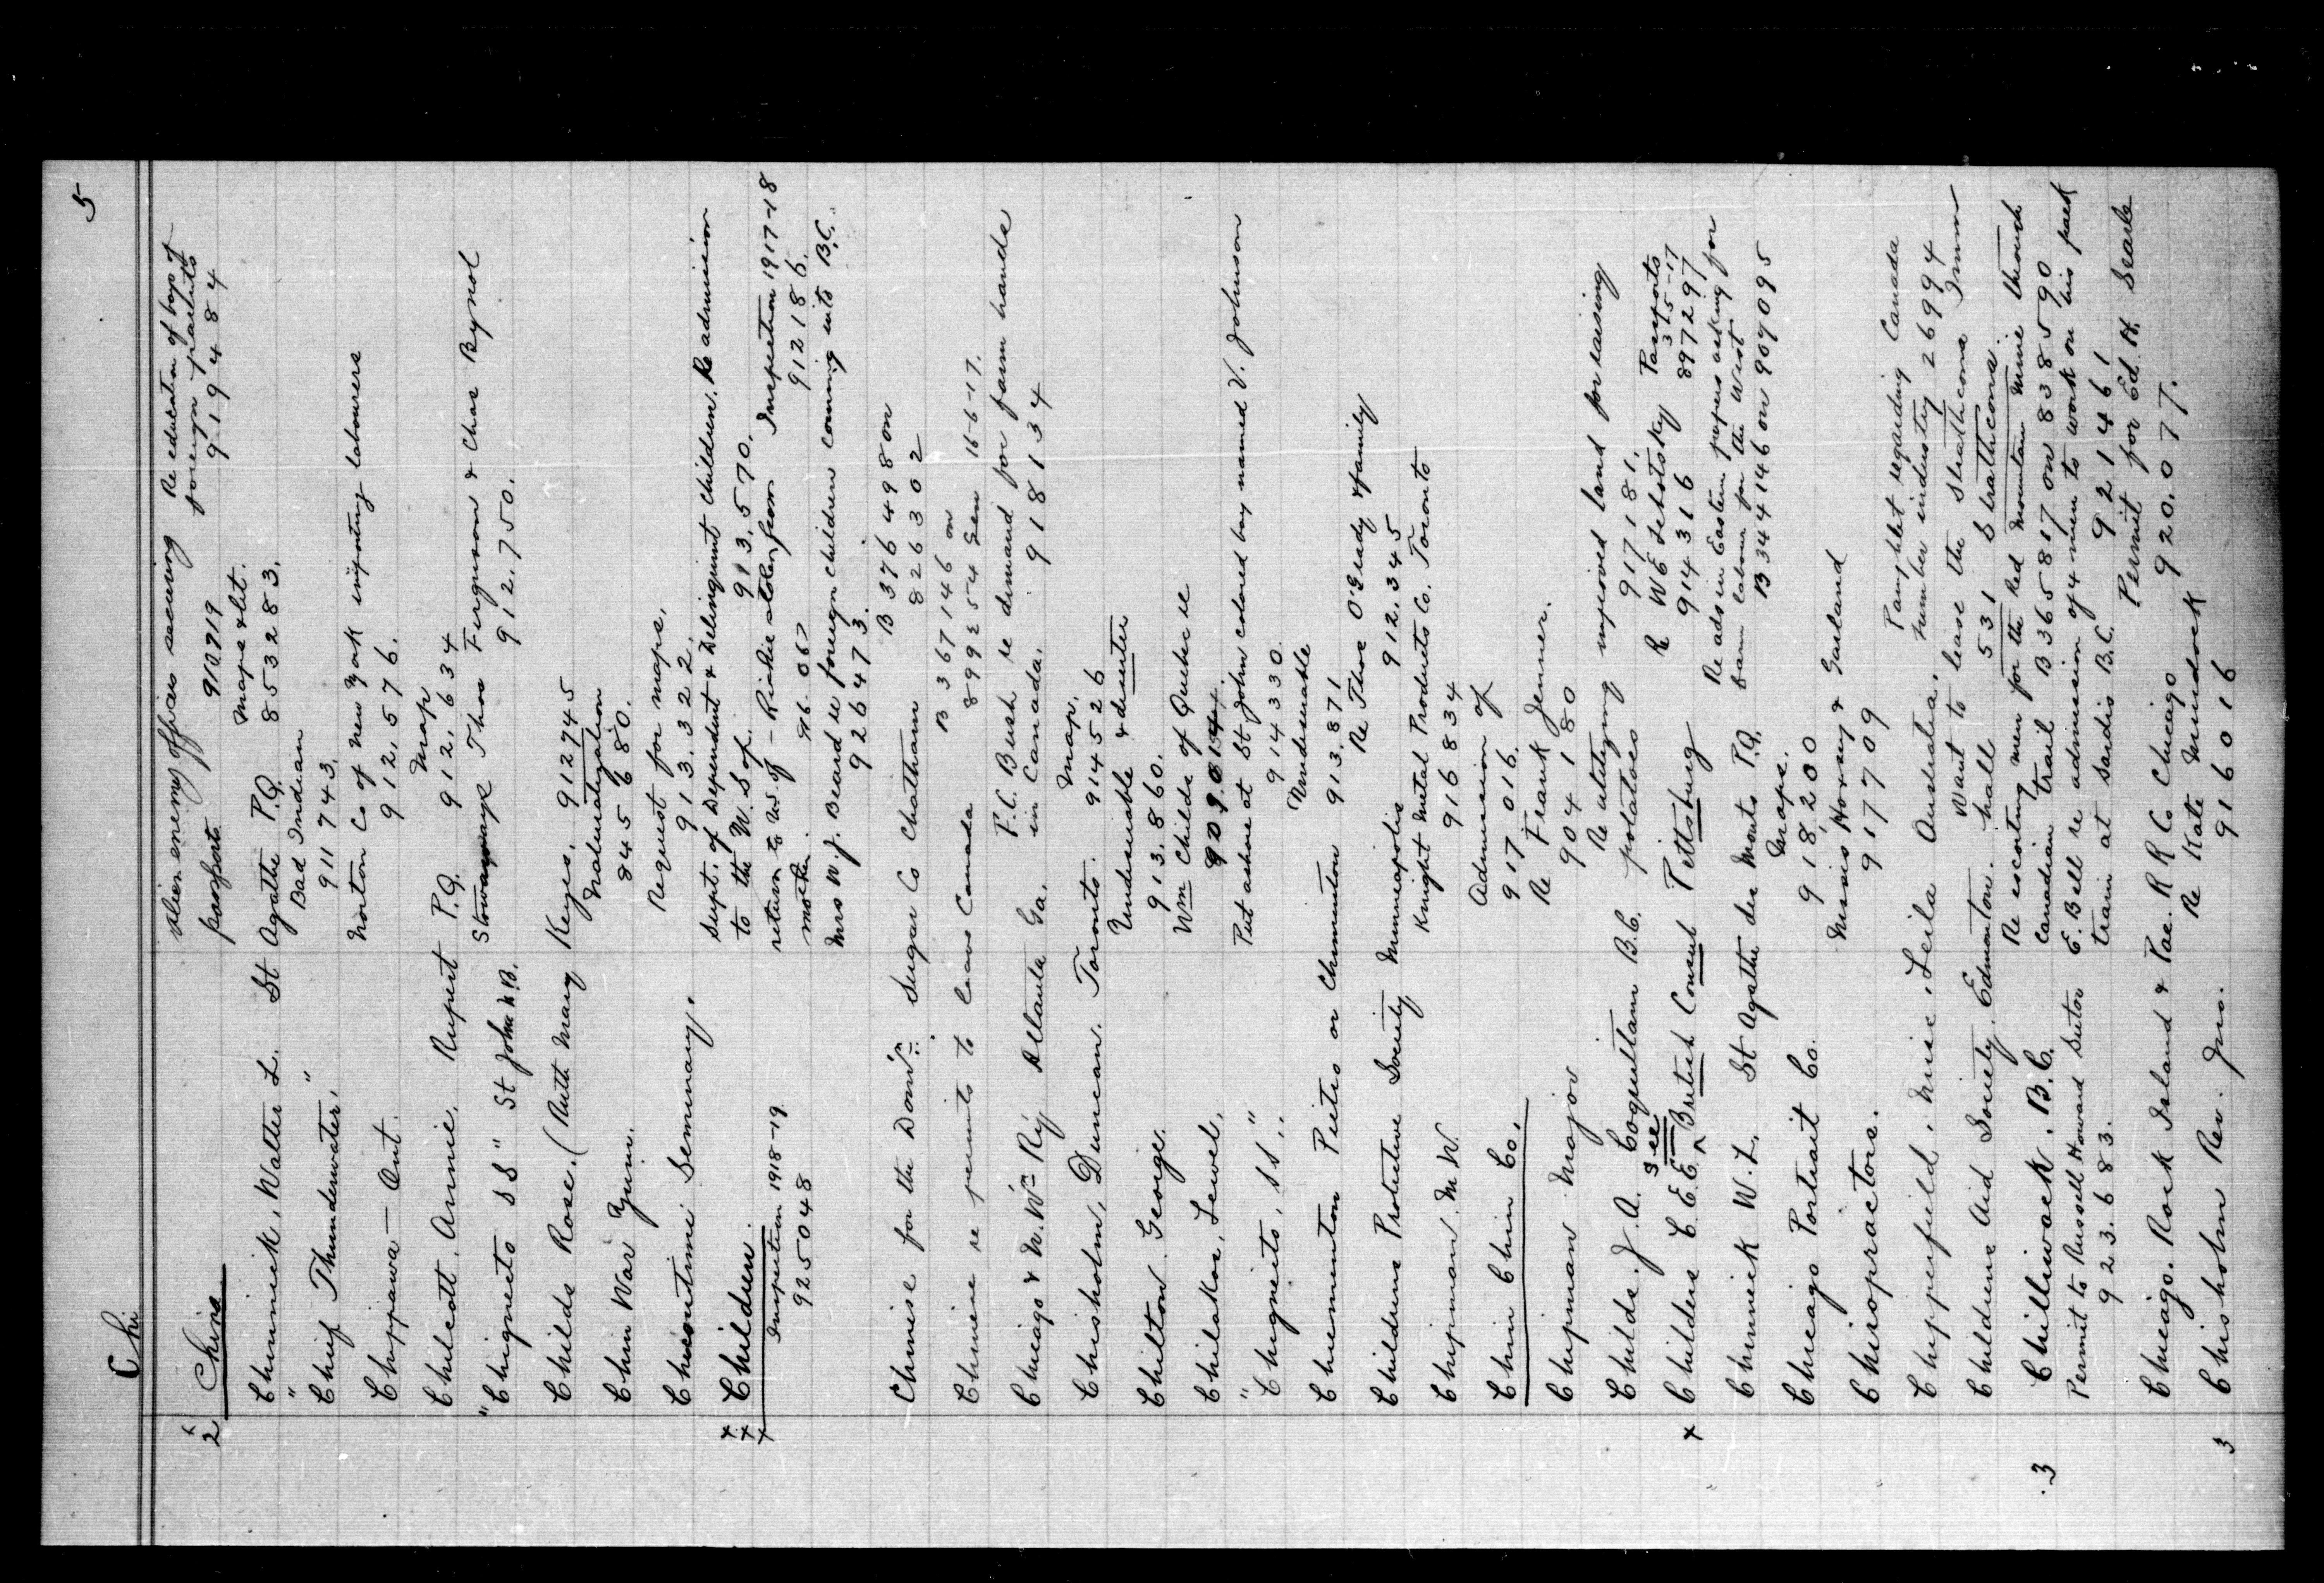 Chi
5
2 China Alien enemy officers securing passports 910719
Re education of boys of foreign parents 919484
Chinnick, Walter L. St Agathe P.Q. Maps & lit. 853283.
" Chief Thunderwater, " Bad Indian 911743.
Chippawa — Ont. Norton Co of New York importing labourers 912,576.
Chilcott, Annie. Rupert P.Q. Map 912,634
"Chignecto SS" St John N.B. Stowaways Thos Ferguson & Chas Bynol 912,750.
Childs Rose. (Ruth Mary Keyes. 912745
Naturalization 845680.
Chin War Yuin.
Chicoutimi Seminary. Request for maps. 913.322.
x x x Children. Supt. of Dependent & Delinquent Children. Re admission to the U.S. of 913,570.
Inspection 1918-19 925048
return to U.S. of — Richie stolen from mother. 916.067
Inspection 1917-18 912186.
Mrs W.J. Beard re foreign children coming into B.C. 926473.
Chinese for the Dom'n Sugar Co Chatham B 376498 on 826302
Chinese re permits to leave Canada B 367146 on 899254 Gen 16-6-17.
Chicago & N. W'n Ry Atlanta Ga. F.C. Bush re demand for farm hands in Canada. 918134
Chisholm, Duncan. Toronto. Map. 914526
Chilton George. Undesirable & deserter 913.860.
Chilakos, Lewel. Wm Childs of Quebec re
"Chignecto, SS". Put ashore at St John colored boy named V. Johnson 914330.
Chiementon Pietro or Chimenton Undesirable 913.871
Childrens Protective Society Minneapolis Re Thos O'Grady & family 912.345
Chipman. M. W. Knight Metal Products Co. Toronto 916834
Chin Chin Co. Admission of 917016.
Chipman Major Re Frank Jenner. 904180
Childs. J.A. Coquitlam B.C. Re utilizing unused land for raising potatoes 917181.
x Childers C.E.E. see British Consul Pittsburg R W E Sebotsky 914316 Passports 3-15-17 897297
Chinnick W.L. St Agathe des Monts P.Q. Re ads in Eastern papers asking for farm labour for the West B 344146 on 909095
Chicago Portrait Co. Maps. 918,200
Chiropractors. Messrs Horsey & Garland 917709
Chippenfield, Miss, Leila Australia. Pamphlet regarding Canada lumber industry 26994
Childrens Aid Society, Edmonton. Want to lease the Strathcona Imm hall 531 Strathcona.
3 Chilliwack, B.C. Re escorting men for the Red Mountain Mine through Canadian trail B 365817 on 838590
Permit to Russell Howard Sutor 923.683.
E. Bell re admission of 4 men to work on his pack train at Sardis B.C. 921461
Chicago. Rock Island & Pac. R R Co Chicago Permit for Ed. H. Searle 920.077.
3 Chisholm Rev. Jno. Re Kate Murdock 916016